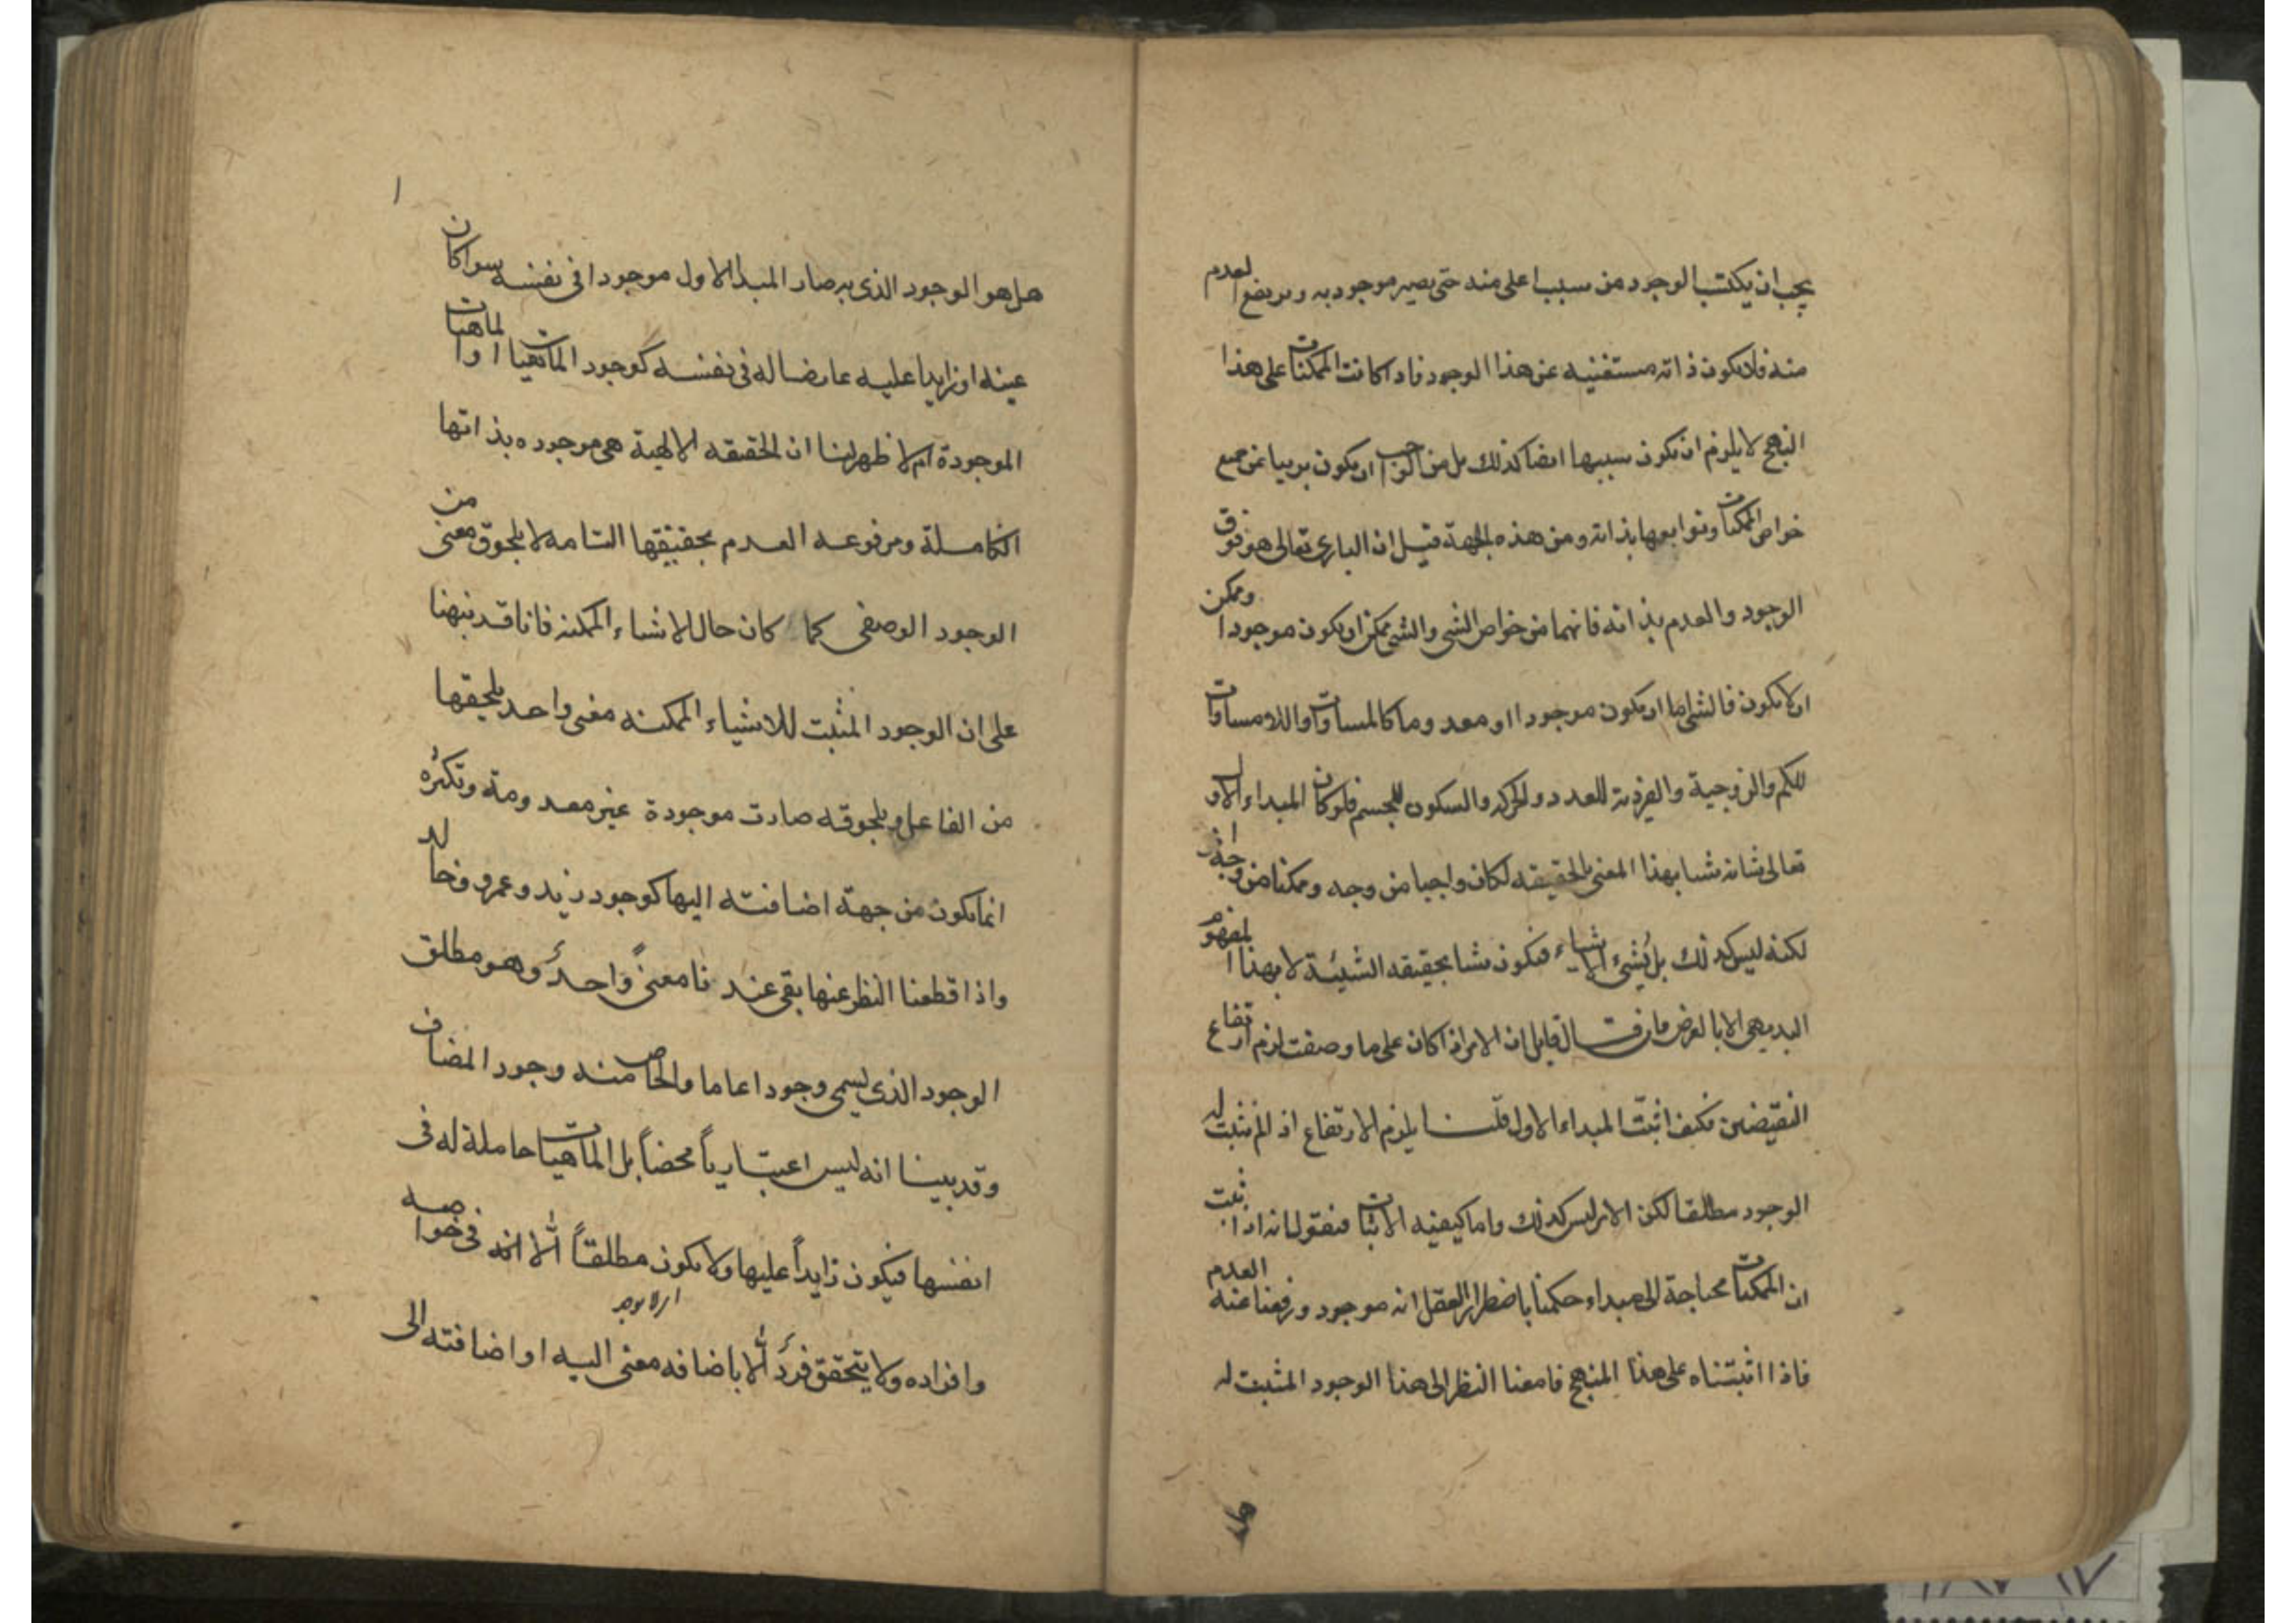 يجب ان يكتسب الوجود من سبب اعلى منه حتى يصير موجود به ويرتفع العدم
منه فلا يكون ذاته مستغنيه عن هذا الوجود فاذا كانت الممكنات على هذا
النهج لا يلزم ان يكون سببها ايضا كذلك بل من الواجب ان يكون بريا عن جميع
خواص الممكنات وتوابعها بذاته ومن هذه الجهة قيل ان البارى تعالى هو فوق
الوجود والعدم بذاته فانهما من خواص الشى والشى ممكن ان يكون موجودا وممكن
ان لا يكون فالشى اما ان يكون موجودا او معدوما كالمساوات واللامساوات
للكم والزوجية والفردية للعدد والحركه والسكون للجسم فلو كان المبداء الاول
تعالى شانه شيا بهذا المعنى بالحقيقه لكان واجبا من وجه وممكنا من وجه اخر
لكنه ليس كذلك بل يُشيء الاشياء فيكون شيا بحقيقه الشيئة لا بهذا المفهوم
البديهى الا بالعرض فان قال قايل ان الامر اذا كان على ما وصفت لزم ارتفاع
النقيضين فكيف اثبتّ المبداء الاول قلنا يلزم الارتفاع اذ لم نثبت له
الوجود مطلقا لكن الامر ليس كذلك واما كيفيه الاثبات فنقول انه اذا ثبت
ان الممكنات محتاجة الى مبداء حكمنا باضطرار العقل انه موجود ورفعنا عنه العدم
فاذا اثبتناه على هذا المنهج فامعنا النظر الى هذا الوجود المثبت له
هل
هل هو الوجود الذى به صار المبدا الاول موجودا فى نفسه سوا كان
عينه او زايدا عليه عارضا له فى نفسه كوجود الماهيات او الماهيات
الموجودة ام لا ظهر لنا ان الحقيقه الالهية هى موجوده بذاتها
الكاملة ومرفوعه العدم بحقيقتها التامه لا بلحوق معنى من
الوجود الوصفى كما كان حال الاشياء الممكنه فانا قد نبهنا
على ان الوجود المثبت للاشياء الممكنه معنى واحد يلحقها
من الفاعل وبلحوقه صارت موجودة غير معدومة وتكثرُه
انما يكون من جهة اضافته اليها كوجود زيد وعمرو وخالد
واذا قطعنا النظر عنها بقى عندنا معنىً واحدٌ وهو مطلق
الوجود الذى يسمى وجودا عاما والخاص منه وجود المضاف
وقد بينا انه ليس اعتبارياً محضاً بل الماهيات حاملة له فى
انفسها فيكون زايداً عليها ولا يكون مطلقاً الّا انه فى خواصه
وافراده ولا يتحقق فردٌ الّا باضافه معنى اليه او اضافته الى